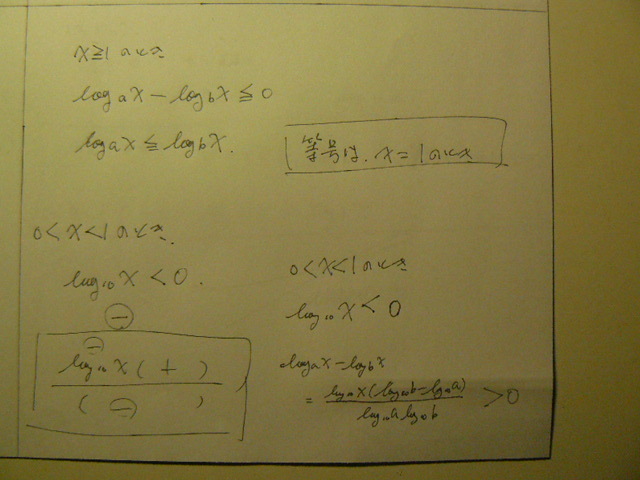 x≧1のとき
log a x − log b x ≦ 0
log a x ≦ log b x.
等号は、x=1のとき
0<x<1のとき.
log₁₀ x < 0.
⊖
⊖
log₁₀ x ( + )
( ⊖ )
0<x<1のとき
log₁₀ x < 0
log a x − log b x
= log₁₀ x (log₁₀ b − log₁₀ a) / log₁₀ a log₁₀ b > 0